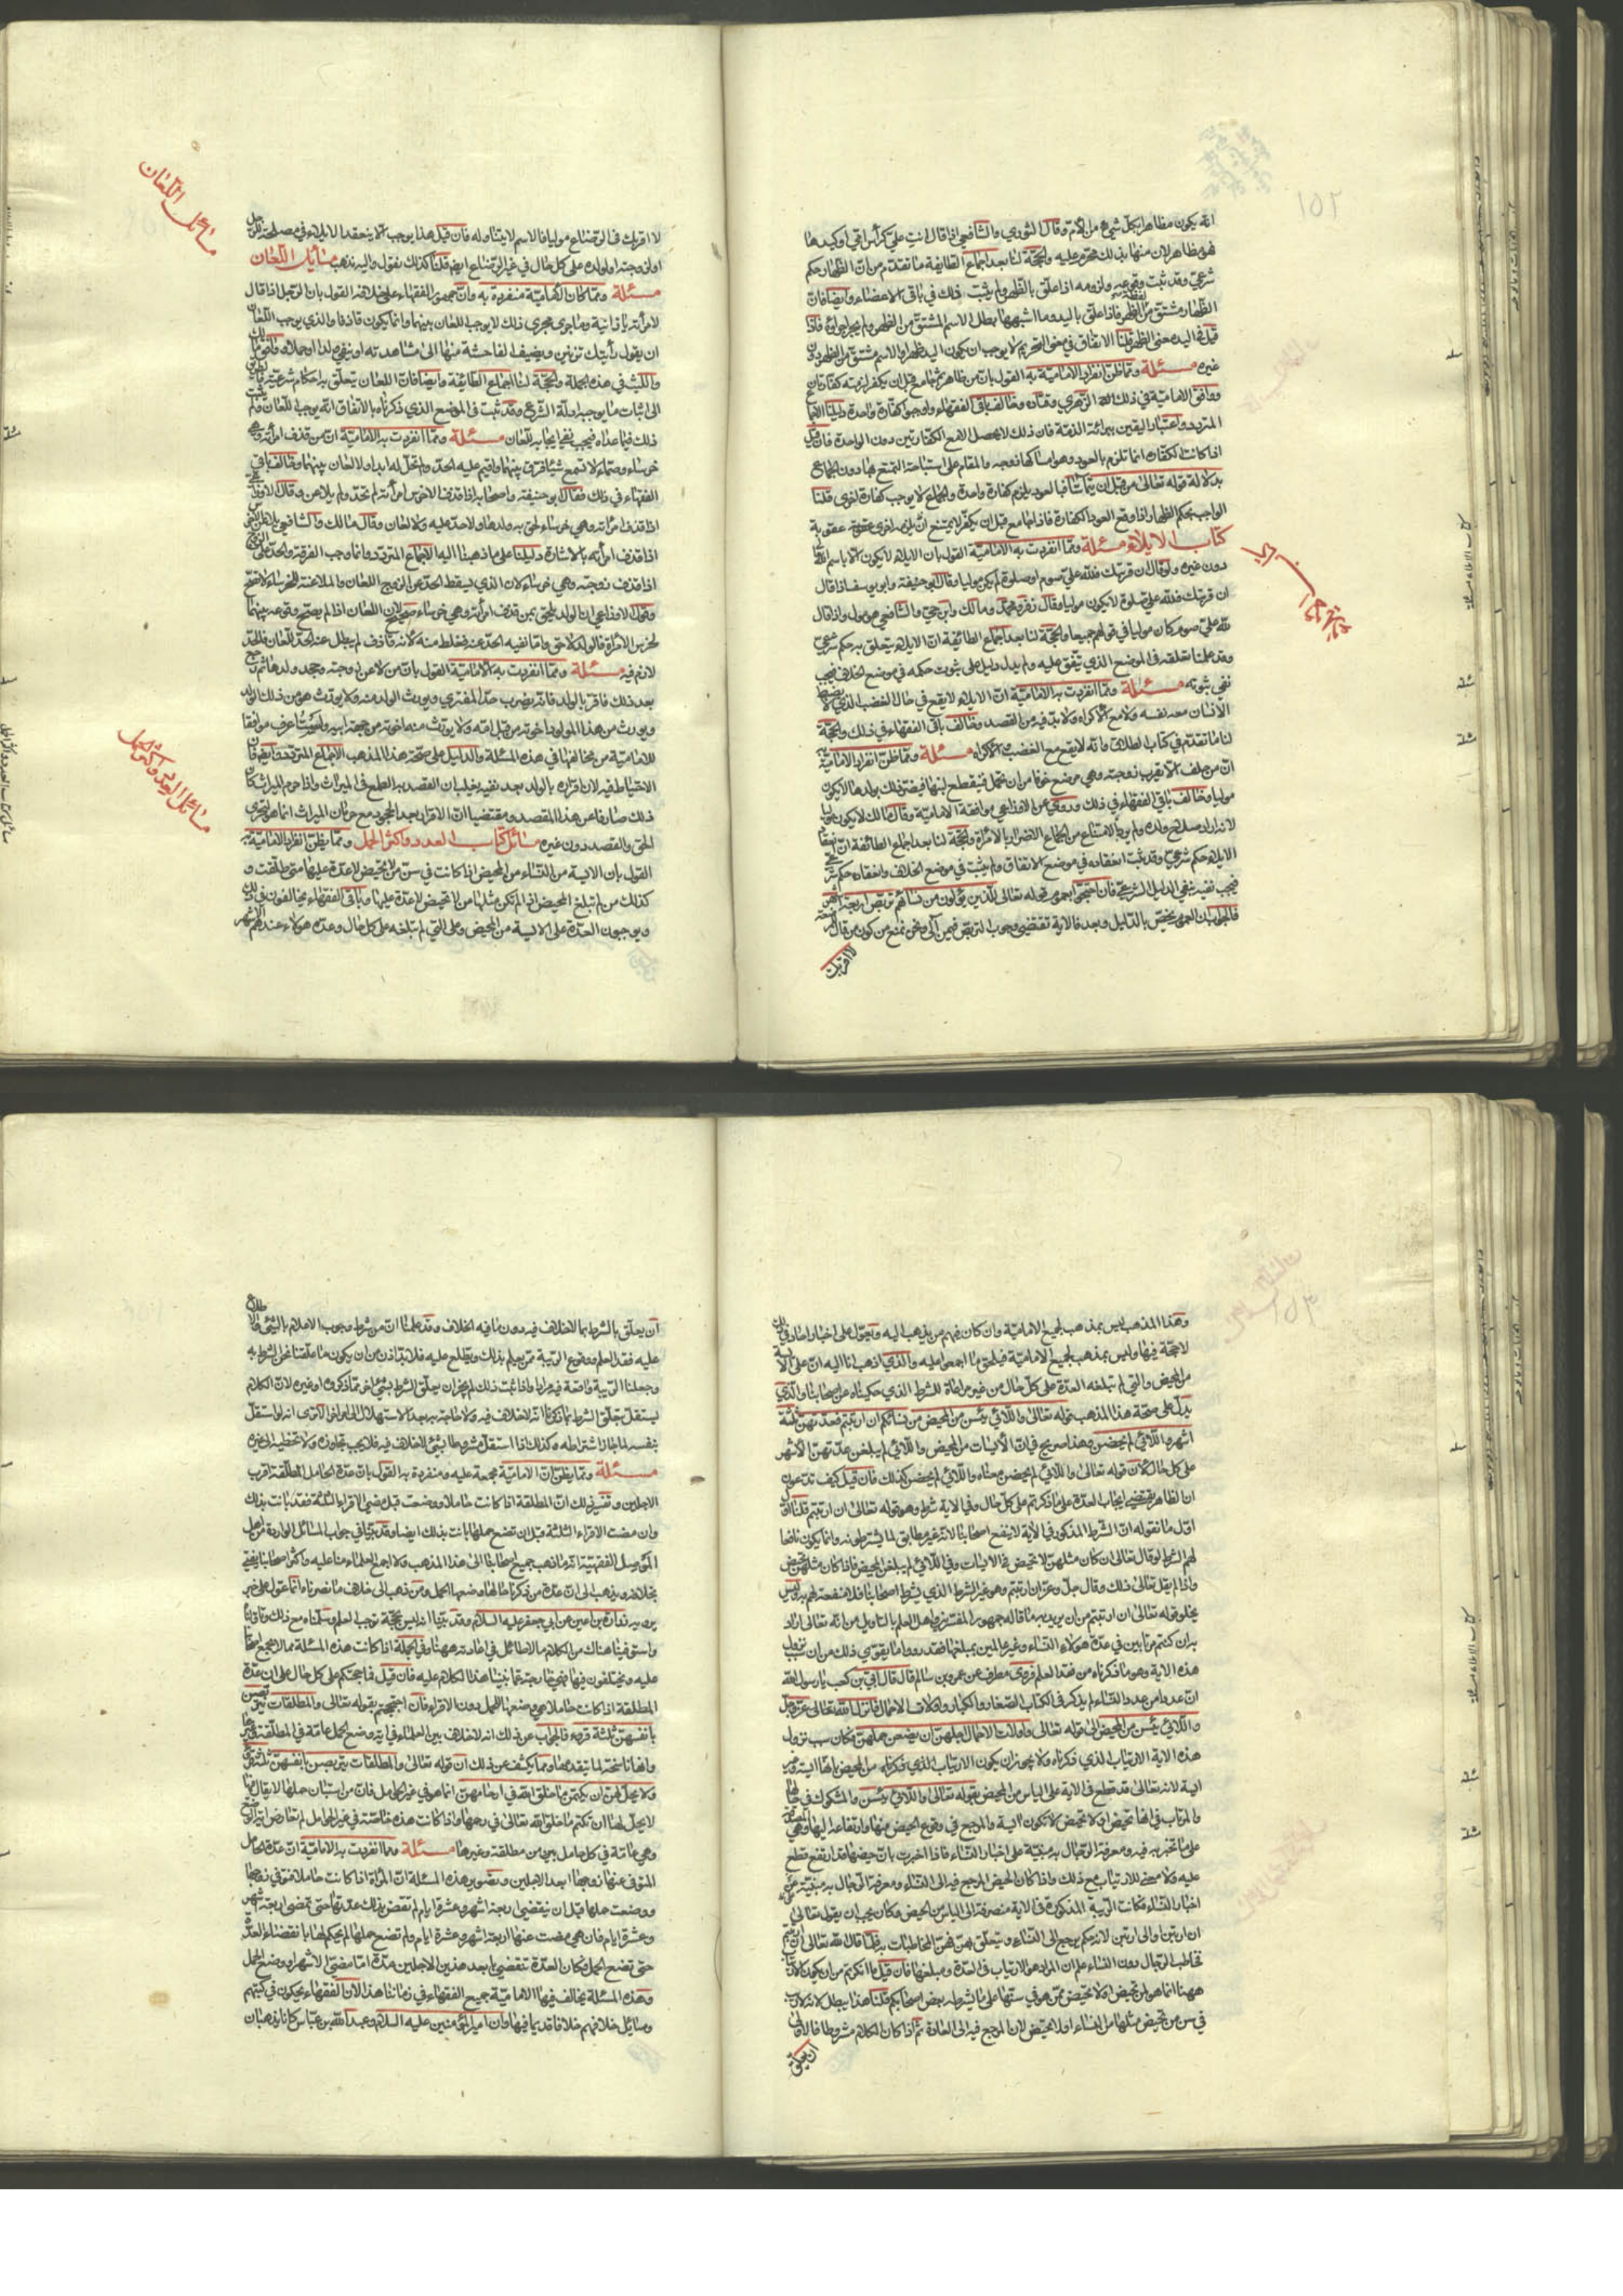 ١٥٢
انه يكون مظاهرا بكل شيء من الام وقال الثوري والشافعي اذا قال انت علي كرأس امي او كيدها
فهو مظاهر لان منها بذلك محرم عليه والحجة لنا بعد اجماع الطائفة ما تقدم من ان الظهار حكم
شرعي وقد ثبت وقوعه ولزومه اذا علق بالظهر ولم يثبت ذلك في باقي الاعضاء وايضا فان
الظهار مشتق من لفظة الظهر فاذا علق باليد وما اشبهها بطل الاسم المشتق من الظهر ولم يجر اجراؤه فاذا
قيل في اليد معنى الظهر قلنا الاتفاق في معنى التحريم لا يوجب ان يكون اليد ظهرا والاسم مشتق من الظهر دون
غيره مسئلة ومما ظن انفراد الامامية به القول بان من ظاهر ثم جامع قبل ان يكفر لزمته كفارتان
ووافق الامامية في ذلك الزهري وقتادة وخالف باقي الفقهاء واوجبوا كفارة واحدة دليلنا الاجماع
المتردد واعتبار اليقين ببرائة الذمة فان ذلك لا يحصل الا مع الكفارتين دون الواحدة فان قيل
اذا كانت الكفارة انما تلزم بالعود وهو امساكها زوجة والمقام على استباحة التمتع بها دون الجماع
بدلالة قوله تعالى من قبل ان يتماسا فبالعود يلزم كفارة واحدة والجماع لا يوجب كفارة اخرى قلنا
الواجب بحكم الظهار اذا وقع العود الكفارة فاذا جامع قبل ان يكفر لا يمتنع ان يلزمه اخرى عقوبة
كتاب الايلاء مسئلة ومما انفردت به الامامية القول بان الايلاء لا يكون الا باسم الله تعالى
دون غيره ولو قال ان قربتك فلله علي صوم او صلوة لم يكن موليا وقال ابو حنيفة وابو يوسف اذا قال
ان قربتك فلله علي صلوة لا يكون موليا وقال زفر ومحمد ومالك وابن حي والشافعي هو مول واذا قال
لله علي صوم كان موليا في قولهم جميعا والحجة لنا بعد اجماع الطائفة ان الايلاء يتعلق به حكم شرعي
وقد علمنا تعلقه في الموضع الذي يتفق عليه ولم يدل دليل على ثبوت حكمه في موضع الخلاف فيجب
نفي ثبوته مسئلة ومما انفردت به الامامية ان الايلاء لا يقع في حال الغضب الذي لا يضبط
الانسان معه نفسه ولا مع الاكراه ولا بد فيه من القصد وخالف باقي الفقهاء في ذلك والحجة
لنا ما تقدم في كتاب الطلاق وانه لا يقع مع الغضب والاكراه مسئلة ومما ظن انفراد الامامية
ان من حلف الا يقرب زوجته وهي مرضع خوفا من ان تحمل فينقطع لبنها فيضر ذلك بولدها لا يكون
موليا وخالف باقي الفقهاء في ذلك وروي عن الاوزاعي موافقة الامامية وقال مالك لا يكون موليا
لانه اراد صلاح ولده ولم يرد بالامتناع من الجماع الاضرار بالمرأة والحجة لنا بعد اجماع الطائفة ان انعقاد
الايلاء حكم شرعي وقد ثبت انعقاده في موضع الاتفاق ولم يثبت في موضع الخلاف وانعقاده حكم شرعي
فيجب نفيه بنفي الدليل الشرعي فان احتجوا بعموم قوله تعالى للذين يؤلون من نسائهم تربص اربعة اشهر
فالجواب ان العموم يخص بالدليل وبعد فالاية تقتضي وجوب التربص فيمن آلى ونحن نمنع من كون من قال
لا اقربك
لا اقربك في الرضاع موليا فالاسم لا يتناوله فان قيل هذا يوجب الا ينعقد الايلاء في مصلحة الرجل
او لزوجته او لولده على كل حال في غير الرضاع ايضا قلنا كذلك نقول واليه نذهب مسائل اللعان
مسئلة ومما كان الامامية منفردة به وان جمهور الفقهاء على خلافه القول بان الرجل اذا قال
لامرأته يا زانية وما جرى مجرى ذلك لا يوجب اللعان بينهما وانما يكون قاذفا والذي يوجب اللعان
ان يقول رأيتك تزنين ويضيف الفاحشة منها الى مشاهدته او ينفي ولدا او حملا ووافق مالك
والليث في هذه الجملة والحجة لنا اجماع الطائفة وايضا فان اللعان يتعلق به احكام شرعية
الى اثبات ما يوجب ادلة الشرع وقد ثبت في الموضع الذي ذكرناه بالاتفاق انه يوجب اللعان ولم يثبت
ذلك فيما عداه فيجب نفي ايجابه للعان مسئلة ومما انفردت به الامامية ان من قذف امرأته وهي
خرساء وصماء لا تسمع شيئا فرق بينهما واقيم عليه الحد ولم تحل له ابدا ولا لعان بينهما وخالف باقي
الفقهاء في ذلك فقال ابو حنيفة واصحابه اذا قذف الاخرس امرأته لم يحد ولم يلاعن وقال الاوزاعي
اذا قذف امرأته وهي خرساء لحق به ولدها ولا حد عليه ولا لعان وقال مالك والشافعي يلاعن الاخرس
اذا قذف امرأته بالاشارة دليلنا على ما ذهبنا اليه الاجماع المتردد وانما وجب الفرقة والحد على الزوج
اذا قذف زوجته وهي خرساء لان الذي يسقط الحد عن الزوج اللعان والملاعنة للخرساء لا تصح
وقول الاوزاعي ان الولد يلحق بمن قذف امرأته وهي خرساء صحيح لان اللعان اذا لم يصح وقوعه بينهما
لخرس الامرأة فالولد لاحق واما نفيه الحد عنه فغلط منه لانه قاذف لم يبطل عنه الحد للعان فالحد
لازم فيه مسئلة ومما انفردت به الامامية القول بان من لاعن زوجته وجحد ولدها ثم رجع
بعد ذلك فاقر بالولد فانه يضرب حد المفتري ويورث الولد منه ولا يورث هو من ذلك الولد
ويورث من هذا المولود اخوته من قبل امه ولا يورث منه اخوته من جهة ابيه ولست اعرف موافقا
للامامية من مخالفها في هذه المسئلة والدليل على صحة هذا المذهب الاجماع المتردد وايضا فان
الاحتياط فيه لان اقراره بالولد بعد نفيه يغلب ان القصد به الطمع في الميراث واذا حرم الميراث كان
ذلك صارفا عن هذا المقصد ومقتضيا ان الاقرار بعد الجحود مع حرمان الميراث انما هو لتحري
الحق والقصد دون غيره مسائل كتاب العدد واكثر الحمل ومما يظن انفراد الامامية به
القول بان الايسة من النساء من المحيض اذا كانت في سن من لا يحيض لا عدة عليها متى طلقت و
كذلك من لم تبلغ المحيض اذا لم تكن مثلها من لا تحيض لا عدة عليها وباقي الفقهاء يخالفون في ذلك
ويوجبون العدة على الايسة من المحيض وعلى التي لم تبلغه على كل حال وعدة هؤلاء عندهم الاشهر
مسائل اللعان
مسائل العدد واكثر الحمل
١٥٣
وهذا المذهب ليس بمذهب لجميع الامامية وان كان فيهم من يذهب اليه ويعول على اخبار احاد في ذلك
لا حجة فيها وليس بمذهب لجميع الامامية فيلحق بما اجمعوا عليه والذي اذهب انا اليه ان على الايسة
من المحيض والتي لم تبلغه العدة على كل حال من غير مراعاة للشرط الذي حكيناه عن اصحابنا والذي
يدل على صحة هذا المذهب قوله تعالى واللائي يئسن من المحيض من نسائكم ان ارتبتم فعدتهن ثلثة
اشهر واللائي لم يحضن وهذا صريح في ان الايسات من المحيض واللائي لم يبلغن عدتهن الاشهر
على كل حال لان قوله تعالى واللائي لم يحضن معناه واللائي لم يحضن كذلك فان قيل كيف تدعون
ان الظاهر يقتضي ايجاب العدة على ما ذكرتم على كل حال وفي الاية شرط وهو قوله تعالى ان ارتبتم قلنا
اول ما نقوله ان الشرط المذكور في الاية لا ينفع اصحابنا لانه غير مطابق لما يشترطونه وانما يكون نافعا
لهم الشرط لو قال تعالى ان كان مثلهن لا تحيض في الايسات وفي اللائي لم يبلغن المحيض اذا كان مثلهن تحيض
واذا لم يقل تعالى ذلك وقال جل وعز ان ارتبتم وهو غير الشرط الذي يشرط اصحابنا فلا منفعة لهم به وليس
يخلو قوله تعالى ان ارتبتم من ان يريد به ما قاله جمهور المفسرين واهل العلم بالتاويل من انه تعالى اراد
به ان كنتم مرتابين في عدة هؤلاء النساء وغير عالمين بمبلغها فقد رووا ما يقوي ذلك من ان سبب نزول
هذه الاية وهو ما ذكرناه من فقد العلم فروى مطرف عن عمرو بن سالم قال قال ابي بن كعب يا رسول الله
ان عددا من عدد النساء لم يذكر في الكتاب الصغار والكبار واولات الاحمال فانزل الله تعالى عز وجل
واللائي يئسن من المحيض الى قوله تعالى واولات الاحمال اجلهن ان يضعن حملهن فكان سبب نزول
هذه الاية الارتياب الذي ذكرناه ولا يجوز ان يكون الارتياب الذي ذكرناه من المحيض بانها ايسة وغير
ايسة لانه تعالى قد قطع في الاية على الياس من المحيض بقوله تعالى واللائي يئسن والمشكوك في حالها
والمرتاب في انها تحيض او لا تحيض لا تكون آيسة والمرجع في وقوع الحيض منها وارتفاعه اليها وهي
على ما تخبر به فيه ومعرفة الرجال به مبنية على اخبار النساء فاذا اخبرت بان حيضها قد ارتفع قطع
عليه ولا معنى للارتياب مع ذلك واذا كان الحيض المرجع فيه الى النساء ومعرفة الرجال به مبنية على
اخبار النساء وكانت الريبة المذكورة في الاية منصرفة الى الياس من المحيض وكان يجب ان يقول تعالى
ان ارتبن او ان ارتبن لانه حكم يرجع الى النساء ويتعلق بهن فهن المخاطبات به فلما قال الله تعالى ان ارتبتم
تخاطب الرجال دون النساء علم ان المراد هو الارتياب في العدة ومبلغها فان قيل ما انكرتم من ان يكون الارتياب
ههنا انما هو لمن تحيض او لا تحيض ممن هو في سنها على ما يشرطه بعض اصحابكم قلنا هذا يبطل لانه لا ريب
في سن من تحيض مثلها من النساء او لا تحيض لان المرجع فيه الى العادة ثم اذا كان الكلام مشروطا فالاولى
ان يعلق
ان يعلق بالشرط بما لا خلاف فيه دون ما فيه الخلاف وقد علمنا ان من شرط وجوب الاعلام بالشيء والاطلاع
عليه فقد العلم ووقوع الريبة ممن يعلم بذلك ويطلع عليه فلا بد اذن من ان يكون ما علقنا نحن الشرط به
وجعلنا الريبة واقعة فيه مرادا واذا ثبت ذلك لم يجز ان يعلق الشرط بشيء اخر مما ذكروه او غيره لان الكلام
يستقل بتعلق الشرط بما ذكرنا انه لا خلاف فيه ولا حاجة به بعد الاستقلال الى امر اخر الا ترى انه لو استقل
بنفسه لما جاز اشتراطه وكذلك اذا استقل مشروطا بشيء لا خلاف فيه فلا يجب تجاوزه ولا تخطيه الى غيره
مسئلة ومما يظن ان الامامية مجمعة عليه ومنفردة به القول بان عدة الحامل المطلقة اقرب
الاجلين وتفسير ذلك ان المطلقة اذا كانت حاملا ووضعت قبل مضي الاقراء الثلثة فقد بانت بذلك
وان مضت الاقراء الثلثة قبل ان تضع حملها بانت بذلك ايضا وقد بينا في جواب المسائل الواردة من اهل
الموصل الفقهية انه ما ذهب جميع اصحابنا الى هذا المذهب ولا اجمع العلماء منا عليه واكثر اصحابنا يفتي
بخلافه ويذهب الى ان عدة من ذكرنا حالها وضعها الحمل ومن ذهب الى خلاف ما نصرناه انما عول على خبر
يرويه زرارة بن اعين عن ابي جعفر عليه السلام وقد بينا انه ليس بحجة توجب العلم وسلمناه مع ذلك وتاولناه
واستوفينا هناك من الكلام ما لا طائل في اعادته ههنا وفي الجملة اذا كانت هذه المسئلة مما لا يجمع اصحابنا
عليه ويختلفون فيها فهي خارجة عما بنينا هذا الكلام عليه فان قيل فما حجتكم على كل حال على ان عدة
المطلقة اذا كانت حاملا هي وضعها الحمل دون الاقراء فان احتججتم بقوله تعالى والمطلقات يتربصن
بانفسهن ثلثة قروء فالجواب عن ذلك انه لا خلاف بين العلماء في اية وضع الحمل عامة في المطلقة وغيرها
وانها ناسخة لما تقدمها ومما يكشف عن ذلك ان قوله تعالى والمطلقات يتربصن بانفسهن ثلثة قروء
ولا يحل لهن ان يكتمن ما خلق الله في ارحامهن انما هو في غير الحامل فان من استبان حملها لا يقال فيها
لا يحل لها ان تكتم ما خلق الله تعالى في رحمها واذا كانت هذه خالصة في غير الحامل لم تعارض اية الوضع
وهي عامة في كل حامل بين من مطلقة وغيرها مسئلة ومما انفردت به الامامية ان عدة الحامل
المتوفى عنها زوجها ابعد الاجلين وتصوير هذه المسئلة ان المرأة اذا كانت حاملا فتوفي زوجها
ووضعت حملها قبل ان ينقضي اربعة اشهر وعشرة ايام لم تنقض بذلك عدتها حتى تمضي اربعة اشهر
وعشرة ايام فان هي مضت عنها اربعة اشهر وعشرة ايام ولم تضع حملها لم يحكم لها بانقضاء العدة
حتى تضع الحمل فكان العدة تنقضي بابعد هذين الاجلين مدة اما مضي الاشهر او وضع الحمل
وهذه المسئلة يخالف فيها الامامية جميع الفقهاء في زماننا هذا لان الفقهاء يحكون في كتبهم
ومسائل خلافهم خلافا قديما فيها وان امير المؤمنين عليه السلام وعبد الله بن عباس كانا يذهبان